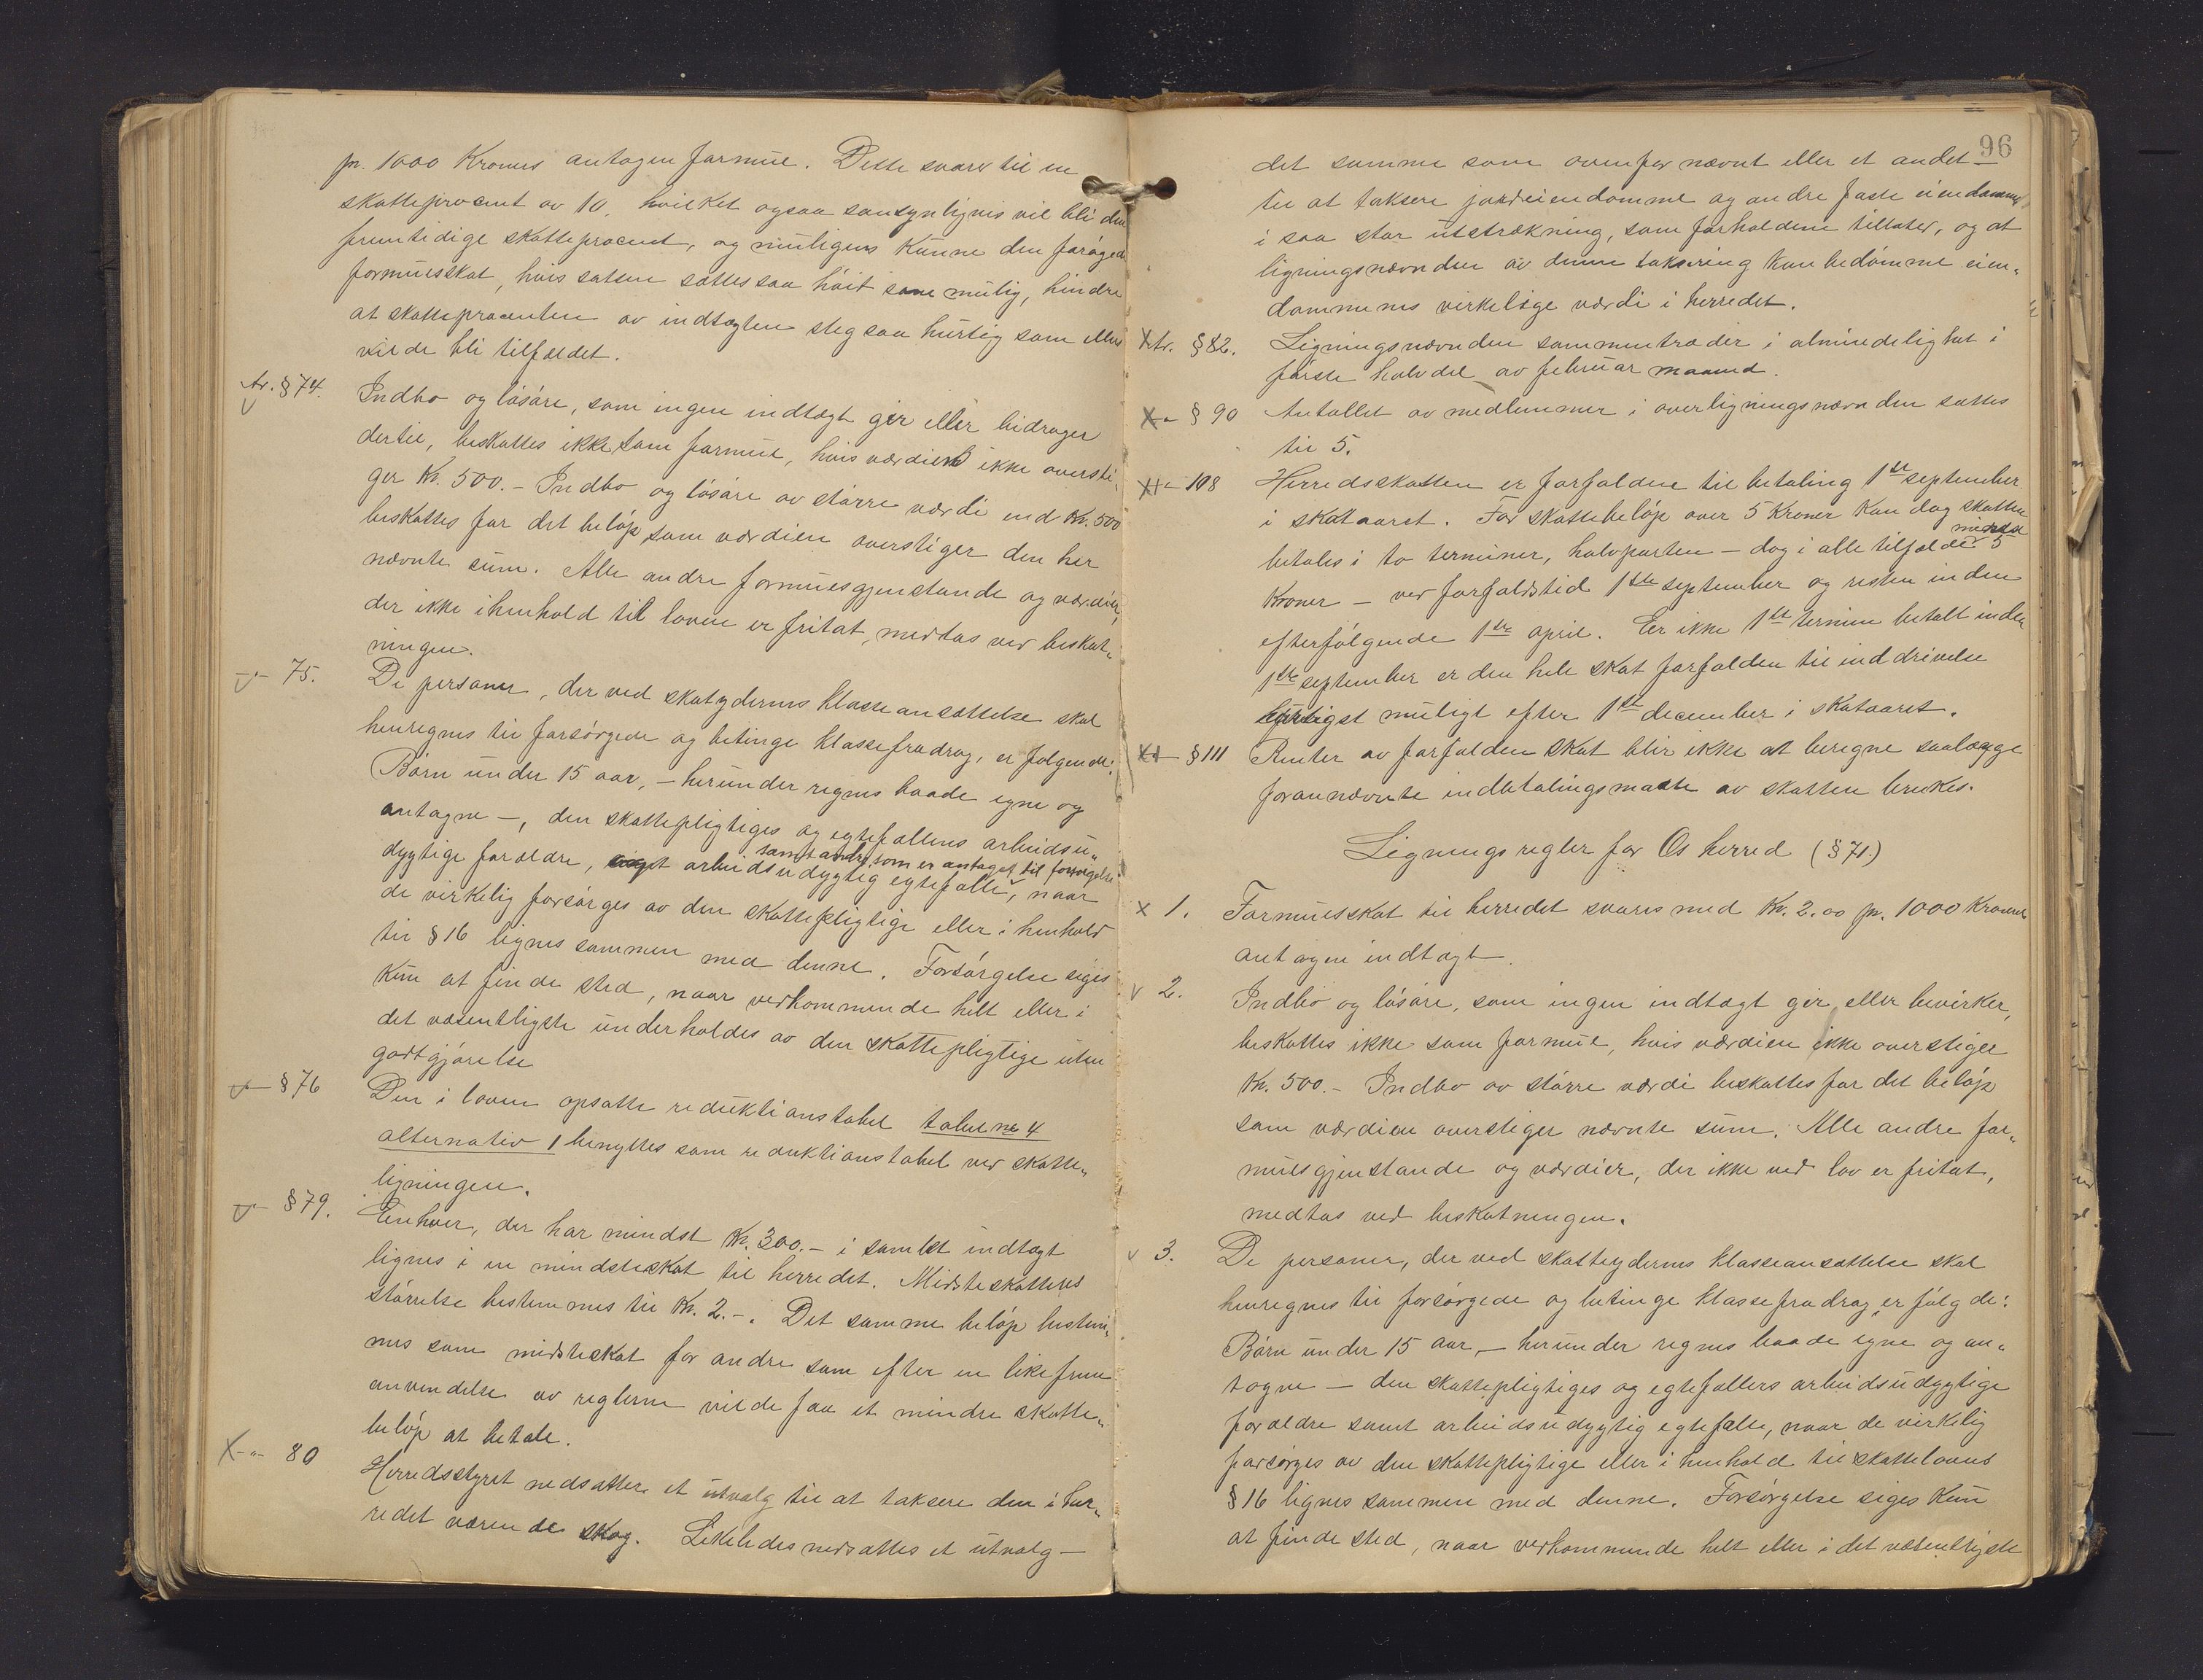 pr. 1000 Kroners antagen formue. Dette svarer til en
skatteprocent av 10, hvilket ogsaa sansynligvis vil bli den
fremtidige skatteprocent, og muligens kunne den forøgede
formuesskat, hvis satsen sættes saa høit som mulig, hindre
at skatteprocenten av indtægten steg saa hurtig som ellers
vilde bli tilfældet.
Ar. § 74. Indbo og løsøre, som ingen indtægt gir eller bidrager
dertil, beskattes ikke som formue, hvis værdien ikke oversti-
ger Kr. 500.- Indbo og løsøre av større værdi end Kr. 500
beskattes for det beløp som værdien overstiger den her
nævnte sum. Alle andre formuesgjenstande og værdier,
der ikke i henhold til loven er fritat, medtas ved beskat-
ningen.
-"- 75. De personer, der ved skatydernes klasseansættelse skal
henregnes til forsørgede og betinge klassefradrag, er følgende:
Børn under 15 aar, - herunder regnes baade egne og
antagne -, den skattepligtiges og egtefællens arbeidsu-
samt andre, som er antaget til forsørgelse
dygtige forældre, arbeidsudygtig egtefælle, naar
de virkelig forsørges av den skattepligtige eller i henhold
til § 16 lignes sammen med denne. Forsørgelse siges
kun at finde sted, naar vedkommende helt eller i
det væsentligste underholdes av den skattepligtige uten
godtgjørelse
-"- § 76 Den i loven opsatte reduktionstabel tabel no 4
alternativ 1 benyttes som reduktionstabel ved skatte-
ligningen.
-"- § 79. Enhver, der har mindst Kr. 300.- i samlet indtægt
lignes i en mindsteskat til herredet. Midsteskattens
størrelse bestemmes til Kr. 2.-. Det samme beløp bestem-
mes som midsteskat for andre som efter en likefrem
anvendelse av reglerne vilde faa et mindre skatte-
beløp at betale.
X -"- 80 Herredsstyret nedsætter et utvalg til at taksere den i her-
redet værende skog. Likeledes nedsættes et utvalg -
96
det samme som ovenfor nævnt eller et andet -
til at taksere jordeiendomme og andre faste eiendomme
i saa stor utstrækning, som forholdene tillater, og at
ligningsnævnden av denne taksering kan bedømme eien-
dommenes virkelige værdi i herredet.
X Ar. § 82. Ligningsnævnden sammentræder i almindelighet i
første halvdel av februar maaned.
X -"- § 90 Antallet av medlemmer i overligningsnævnden sættes
til 5.
X -"- 108 Herredsskatten er forfalden til betaling 1ste september
i skataaret. For skattebeløp over 5 Kroner kan dog skatten
mindst
betales i to terminer, halvparten - dog i alle tilfælde 5
Kroner - ved forfaldstid 1ste september og resten inden
efterfølgende 1ste april. Er ikke 1ste termin betalt inden
1ste september er den hele skat forfalden til inddrivelse
hurtigst muligt efter 1ste december i skataaret.
X -"- § 111 Renter av forfalden skat blir ikke at beregne saalænge
forannævnte indbetalingsmaate av skatten brukes.
Ligningsregler for Os herred (§ 71.)
X 1. Formuesskat til herredet svares med Kr. 2.00 pr. 1000 Kroners
antagen indtægt.
v 2. Indbo og løsøre, som ingen indtægt gir, eller bevirker,
beskattes ikke som formue, hvis værdien ikke overstiger
Kr. 500.- Indbo av større værdi beskattes for det beløp
som værdien overstiger nævnte sum. Alle andre for-
muesgjenstande og værdier, der ikke ved lov er fritat,
medtas ved beskatningen.
v 3. De personer, der ved skatteydernes klasseansættelse skal
henregnes til forsørgede og betinge klassefradrag er følgde:
Børn under 15 aar, - herunder regnes baade egne og an-
tagne - den skattepligtiges og egtefællers arbeidsudygtige
forældre samt arbeidsudygtig egtefælle, naar de virkelig
forsørges av den skattepligtige eller i henhold til skattelovens
§ 16 lignes sammen med denne. Forsørgelse siges kun
at finde sted, naar vedkommende helt eller i det væsentligste